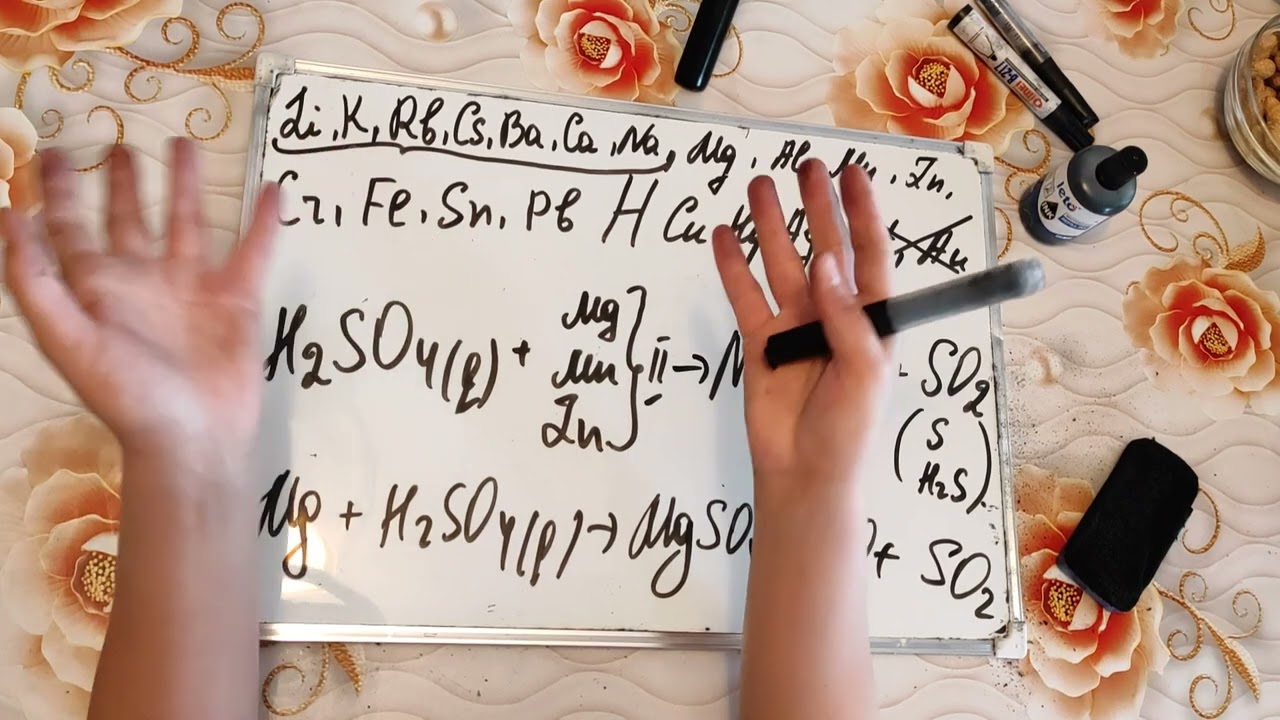 Li, K, Rb, Cs, Ba, Ca, Na, Mg, Al, Mn, Zn,
Cr, Fe, Sn, Pb H Cu Hg Ag Au
H₂SO₄(р) + Mg Mn Zn } II → SO₂ (S H₂S)
Mg + H₂SO₄(р) → MgSO + SO₂
leto